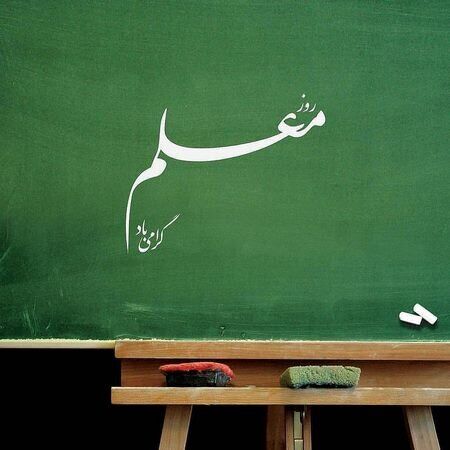 روز
معلم
گرامی باد